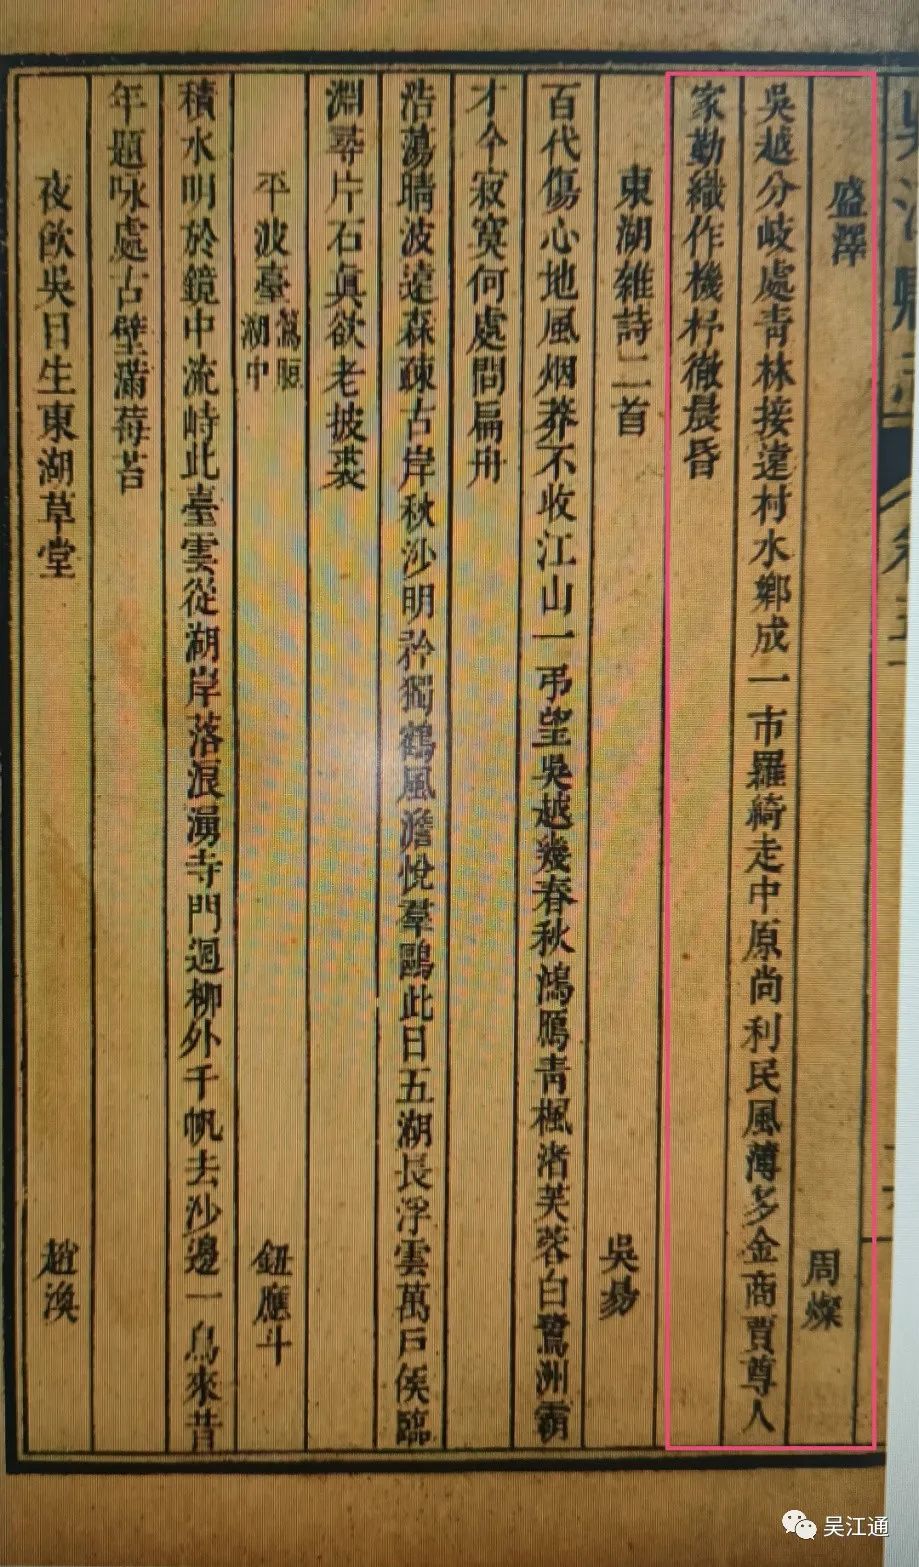 盛澤
周燦
吳越分岐處青林接遠村水鄉成一市羅綺走中原尚利民風薄多金商賈尊人
家勤織作機杼徹晨昏
東湖雜詩二首
吳昜
百代傷心地風烟莽不收江山一弔望吳越幾春秋鴻鴈青楓渚芙蓉白鷺洲霸
才今寂寞何處問扁舟
浩蕩晴波遠森疎古岸秋沙明矜獨鶴風澹悅羣鷗此日五湖長浮雲萬戶侯臨
淵尋片石眞欲老披裘
平波臺鶯脰湖中
鈕應斗
積水明於鏡中流峙此臺雲從湖岸落浪湧寺門迴柳外千帆去沙邊一鳥來昔
年題咏處古壁滿莓苔
夜飲吳日生東湖草堂
趙渙
吴江通